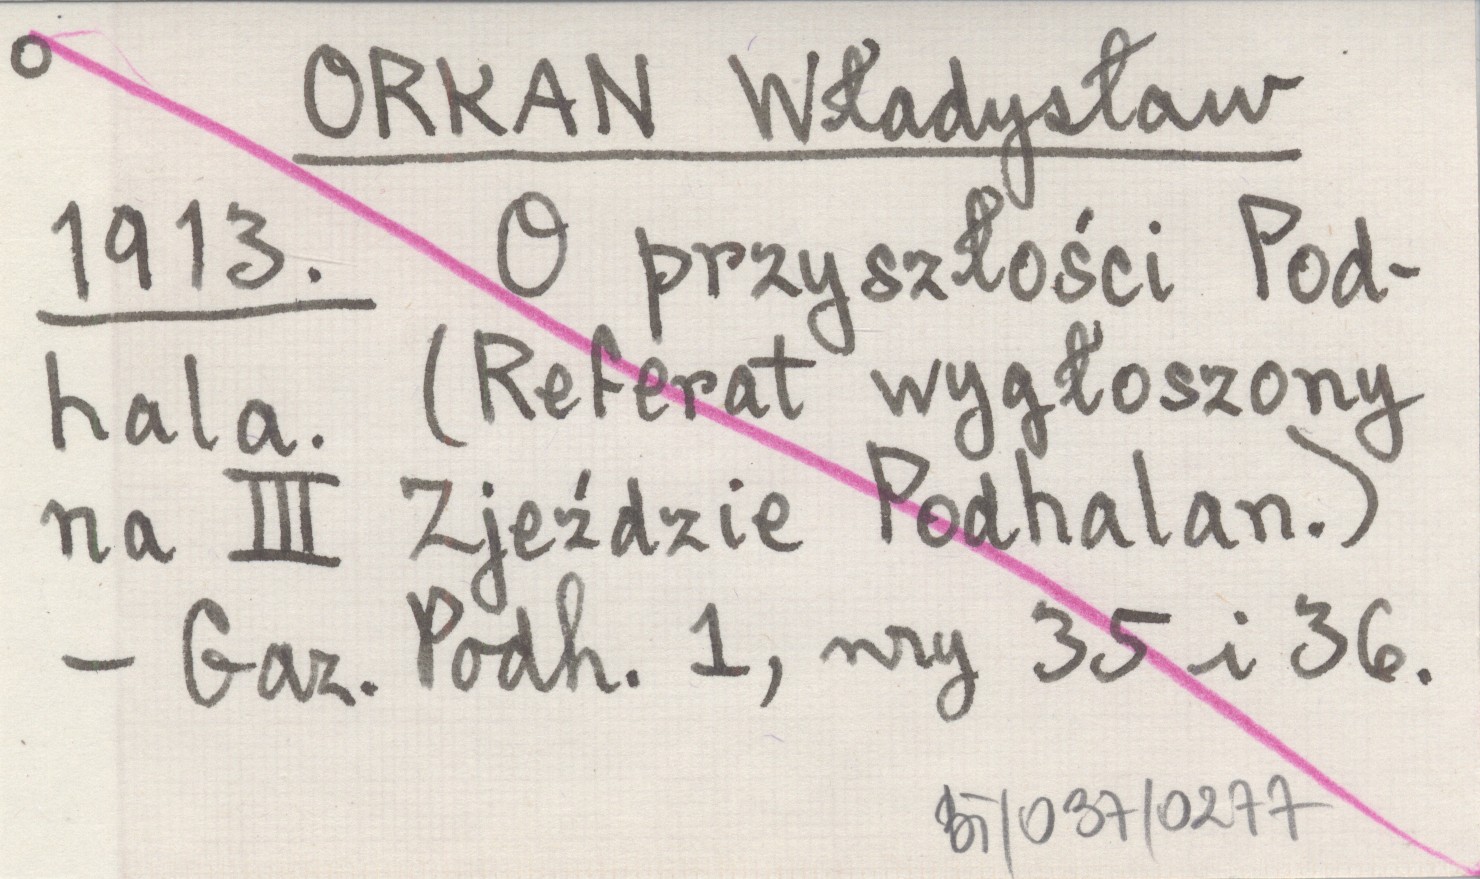 o ORKAN Władysław
1913. O przyszłości Pod-
hala. (Referat wygłoszony
na III Zjeździe Podhalan.)
- Gaz. Podh. 1, nry 35 i 36.
/037/0277